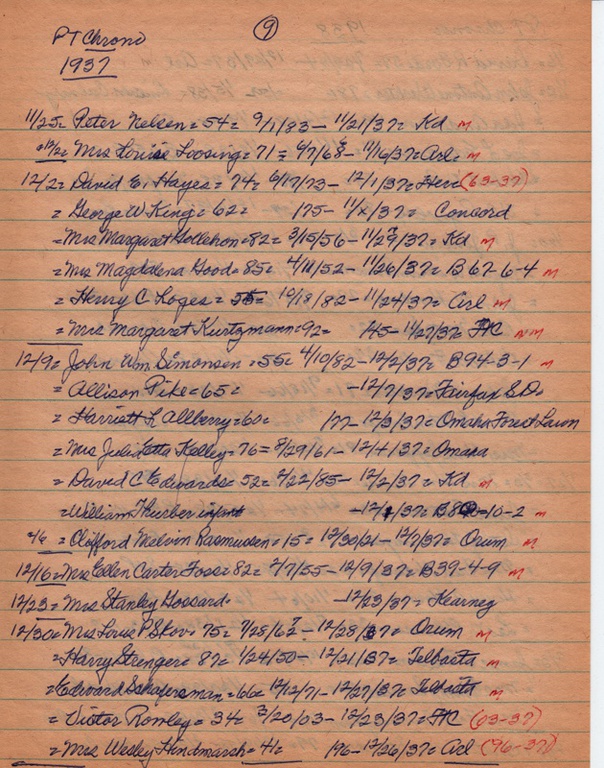 9
PT Chrono
1937
11/25= Peter Nelsen= 54= 9/1/83- 11/21/37= Kd m
=12/2= Mrs Louise Loosing= 71= 6/7/68- 11/16/37= Arl= m
12/2= David E. Hayes= 74= 6/17/73- 12/1/37= Her= (63-37)
= George W King= 62= 175- 11/x/37= Concord
=Mrs Margaret Gollehon=82= 3/15/56- 11/29/37= Kd m
=Mrs Magdalena Good= 85= 4/11/52- 11/26/37= B 67-6-4 m
= Henry C Loges= 55= 10/18/82- 11/24/37= Arl m
=Mrs Margaret Kurtzmann=92= 145- 11/27/37= FHC NM
12/9= John Wm. Simonsen=55= 4/10/82- 12/2/37= B94-3-1 m
=Allison Pike=65= -12/7/37=Fairfax S.D.
= Harriett L Allberry=60= 177- 12/3/37=Omaha Forest Lawn
=Mrs Julia Etta Kelley= 76= 8/29/61- 12/4/37= Omaha
=David C Edwards= 52= 2/22/85- 12/2/37= Kd m
=William Thurber infant -12/1/37= -10-2 m
= Clifford Melvin Rasmussen= 15= 12/30/21- 12/7/37= Orum m
12/16=Mrs Ellen Carter Foss= 82= 2/7/55- 12/9/37= B39-4-9 m
12/23=Mrs Stanley Gossard= -12/23/37= Kearney
12/30=Mrs Louis P Skov= 75= 7/28/62- 12/28/37= Orum m
=Harry Strenger= 87= 1/24/50- 12/21/37= Telbasta m
=Edward Schafersman=66= 12/12/71- 12/27/37= Telbasta m
= Victor Rowley= 34= 3/20/03- 12/23/37= FHC (03-37)
=Mrs Wesley Hindmarsh=41= 196- 12/26/37= Arl (96-37)